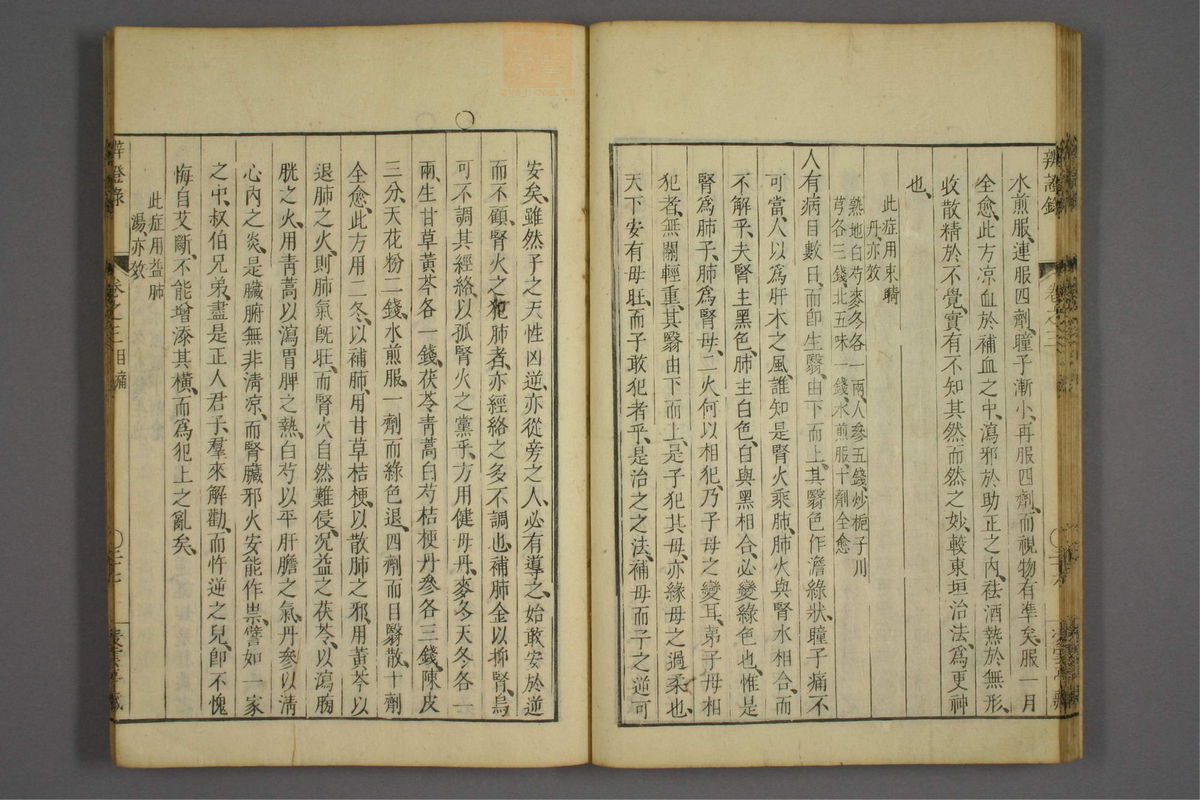 水煎服、連服四劑、瞳子漸小、再服四劑、而視物有準矣、服一月
全愈、此方凉血於補血之中、瀉邪於助正之內、祛酒熱於無形、
收散精於不覺、實有不知其然而然之妙、較東垣治法、為更神
也、
此症用束睛
丹亦效
熟地白芍麥冬各一兩、人參五錢、炒梔子川
芎各三錢、北五味一錢、水煎服、十劑全愈
人有病目數日、而即生翳、由下而上、其翳色作淡綠狀、瞳子痛不
可當、人以為肝木之風、誰知是腎火乘肺、肺火與腎水相合、而
不解乎、夫腎主黑色、肺主白色、白與黑相合、必變綠色也、惟是
腎為肺子、肺為腎母、二火何以相犯、乃子母之變耳、第子母相
犯者、無關輕重、其翳由下而上、是子犯其母、亦緣母之過柔也、
天下安有母旺、而子敢犯者乎、是治之之法、補母而子之逆可
安矣、雖然子之天性凶逆、亦從旁之人、必有導之、始敢安於逆
而不顧、腎火之犯肺者、亦經絡之多不調也、補肺金以抑腎、烏
可不調其經絡、以孤腎火之黨乎、方用健母丹、麥冬天冬各一
兩、生甘草黃芩各一錢、茯苓青蒿白芍桔梗丹參各三錢、陳皮
三分、天花粉二錢、水煎服、一劑而綠色退、四劑而目翳散、十劑
全愈、此方用二冬、以補肺、用甘草桔梗、以散肺之邪、用黃芩以
退肺之火、則肺氣既旺、而腎火自然難侵、況益之茯苓、以瀉膀
胱之火、用青蒿以瀉胃脾之熱、白芍以平肝膽之氣、丹參以清
心內之炎、是臟腑無非清凉、而腎臟邪火、安能作祟、譬如一家
之中、叔伯兄弟、盡是正人君子、羣來解勸、而忤逆之兒、即不愧
悔自艾、斷不能增添其橫、而為犯上之亂矣、
此症用益肺
湯、亦效